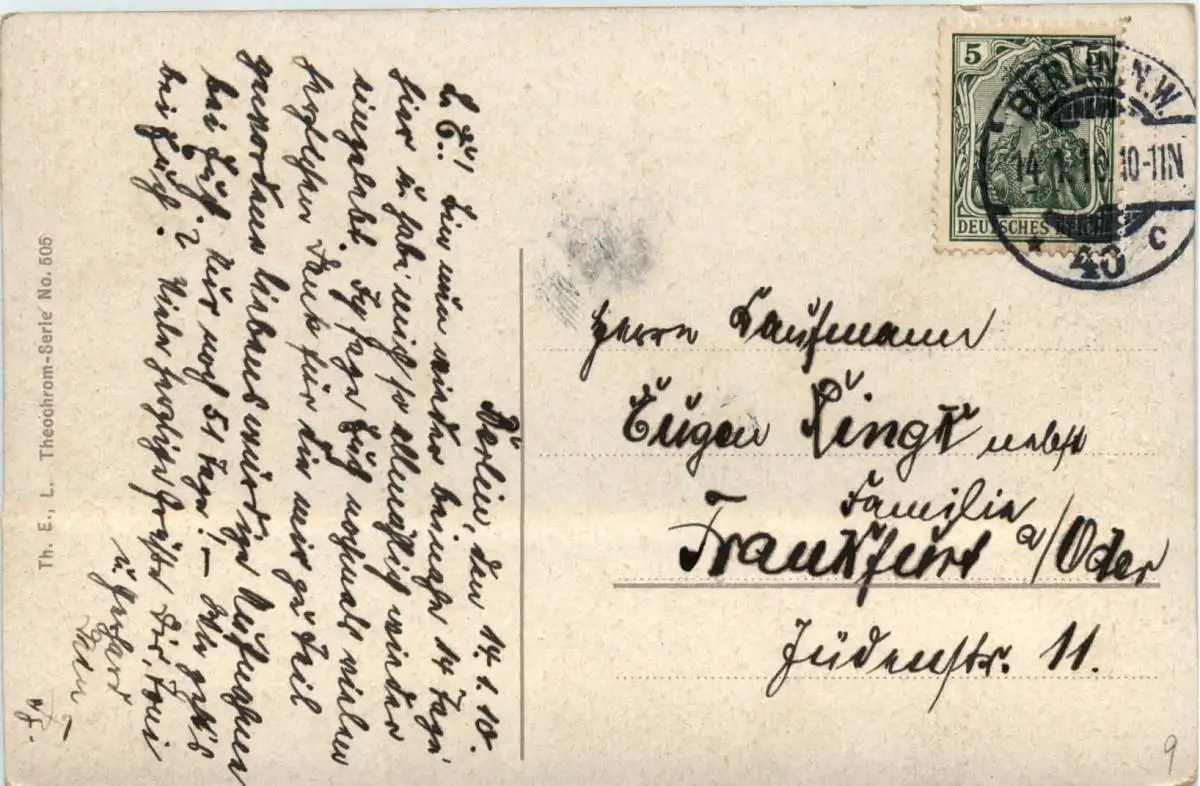 Berlin, den 14.1.10.
L. E.! Bin nun wieder beinahe 14 Tage
hier u habe mich so allmählig wieder
eingelebt. Ich sage Euch nochmals vielen
herzlichen Dank für die mir zu teil
gewordene liebenswürdige Aufnahme
bei Euch. Nur noch 51 Tage! – Wie geht's
bei Euch? Viele herzliche Grüße Dir, Toni
u Gerhard
Dein
Th. E., L. Theochrom-Serie No. 505
5 5
DEUTSCHES REICH
BERLIN N.W.
14.1.10 10-11N
* 40 c
Herrn Kaufmann
Eugen Ringk nebst
Familie
Frankfurt a/Oder
Jüdenstr. 11.
9